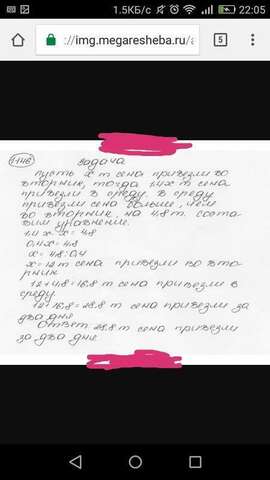 1.5КБ/с 22:05
://img.megaresheba.ru/a 5
1146 задача
пусть х т сена привезли во
вторник, тогда 1,4х т сена
привезли в среду. в среду
привезли сена больше, чем
во вторник, на 4,8 т. соста-
вим уравнение.
1,4х-х=4,8
0,4х=4,8
х=4,8:0,4
х=12 т сена привезли во вто-
рник
12+4,8=16,8 т сена привезли в
среду
12+16,8=28,8 т сена привезли за
два дня
Ответ 28,8 т сена привезли
за два дня